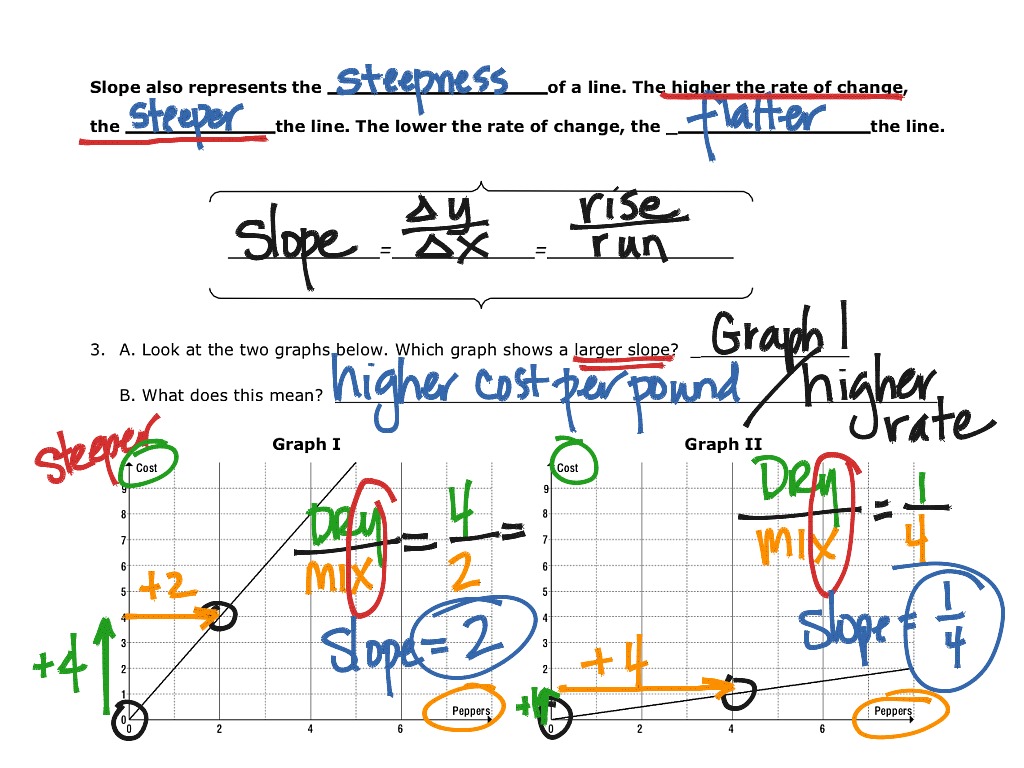 Slope also represents the steepness of a line. The higher the rate of change,
the steeper the line. The lower the rate of change, the flatter the line.
Slope = Δy/Δx = rise/run
3. A. Look at the two graphs below. Which graph shows a larger slope? Graph 1 / higher rate
B. What does this mean? higher cost per pound
steeper
Graph I
Cost
9
8
7
6
5
4
3
2
1
0
0 2 4 6
Peppers
DRy/mix = 4/2 =
+2
+4
Slope = 2
Graph II
Cost
9
8
7
6
5
4
3
2
1
0
0 2 4 6
Peppers
DRy/mix = 1/4
+4
Slope = 1/4